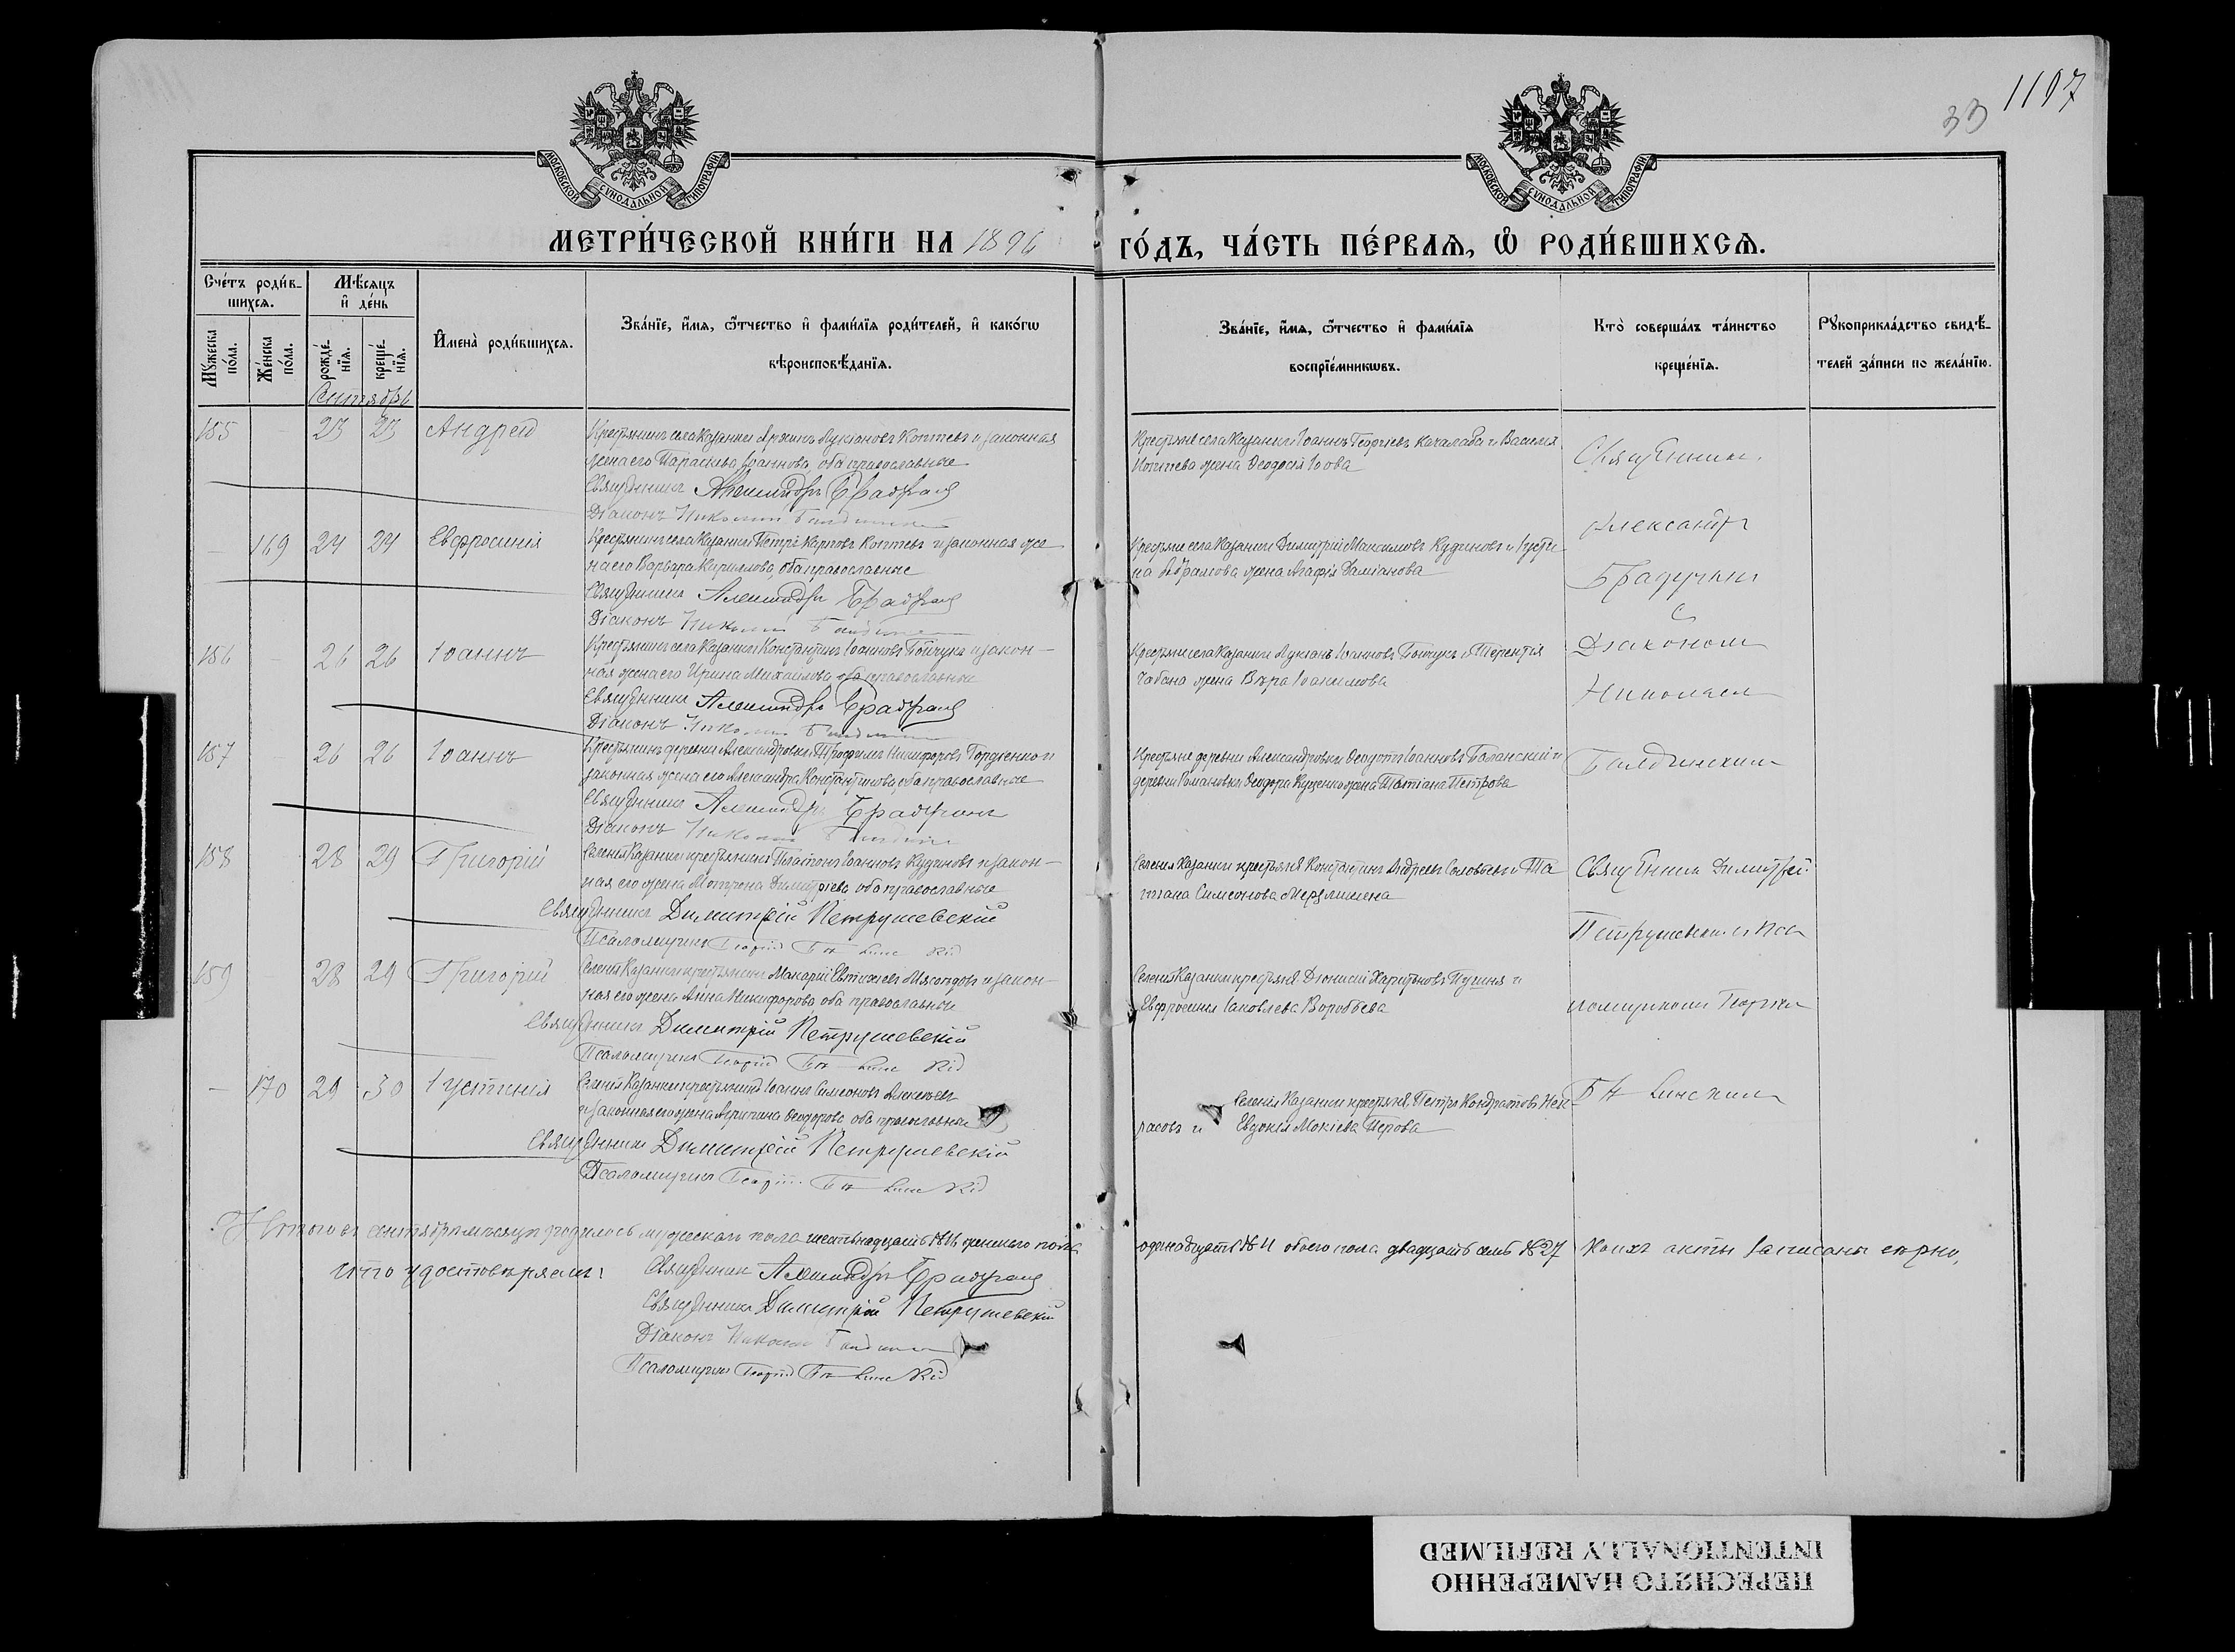 1107
33
МОСКОВСКОЙ СѴНОДАЛЬНОЙ ТИПОГРАФІИ
МОСКОВСКОЙ СѴНОДАЛЬНОЙ ТИПОГРАФІИ
МЕТРИ́ЧЕСКОЙ КНИ́ГИ НА 1896 ГО́ДЪ, ЧА́СТЬ ПЕ́РВАѦ, Ѽ РОДИ́ВШИХСѦ.
Сче́тъ роди́в-
шихсѧ.
Мѣ́сѧцъ
и҆ де́нь
Мꙋ́жеска
по́ла.
Же́нска
по́ла.
рожде́-
нїѧ.
креще́-
нїѧ.
И҆мена̀ роди́вшихсѧ.
Зва́нїе, и҆́мѧ, ѻ҆́тчество и҆ фами́лїѧ роди́телей, и҆ како́гѡ
вѣроисповѣ́данїѧ.
Зва́нїе, и҆́мѧ, ѻ҆́тчество и҆ фами́лїѧ
воспрїе́мникѡвъ.
Кто̀ соверша́лъ та́инство
креще́нїѧ.
Рꙋкоприкла́дство свидѣ́-
телей за́писи по жела́нїю.
Сентябрь
155 - 23 23 Андрей
Крестьянинъ села Казанки Лукіановъ Коптевъ и законная
жена его Параскева Іоаннова, оба православные
Священникъ Александръ Брадучанъ
Діаконъ Николай
Крестьяне села Казанки Іоаннъ Георгіевъ и Василія
Коптева жена Ѳеодосія Іова
- 169 24 24 Евфросинія
Крестьянинъ села Казанки Петръ Карповъ Коптевъ и законная же
на его Варвара Кириллова, оба православные
Священникъ Александръ Брадучанъ
Діаконъ Николай
Крестьяне села Казанки Димитрій Максимовъ Кудриновъ и
на Абрамова жена Агафія Даміанова
156 - 26 26 Іоаннъ
Крестьянинъ села Казанки Константинъ Іоанновъ Бойчукъ и закон-
ная жена его Ирина Михаилова, оба православные
Священникъ Александръ Брадучанъ
Діаконъ Николай
Крестьяне села Казанки Лукіанъ Іоанновъ Бойчукъ и Терентія
Чабана жена Вѣра Іоакимова
157 26 26 Іоаннъ
Крестьянинъ деревни Александровки Трофимъ Никифоровъ Гордіенко и
законная жена его Александра Константинова, оба православные
Священникъ Александръ Брадучанъ
Діаконъ Николай
Крестьяне деревни Александровки Ѳеодотъ Іоанновъ и
деревни Романовки Ѳеодора Куценко жена Татіана Петрова
Священникъ
Александръ
Брадучанъ
с
Діакономъ
Николаемъ
158 - 28 29 Григорій
Селенія Казанки крестьянинъ Платонъ Іоанновъ Кудриновъ и закон-
ная его жена Матрона Димитріева, оба православные
Священникъ Димитрій Петрушевскій
Псаломщикъ Георгій
Селенія Казанки крестьяне Константинъ Андреевъ Соловьевъ и Та
тіана Симеонова
Священникъ Димитрій
Петрушевскій и Пса
159 28 29 Григорій
Селенія Казанки крестьянинъ Макарій Евтихіевъ Мясоѣдовъ и закон-
ная его жена Анна Никифорова, оба православные
Священникъ Димитрій Петрушевскій
Псаломщикъ Георгій
Селенія Казанки крестьяне Діонисій Харитоновъ и
Евфросинія Іаковлева Воробьева
ломщикомъ Георгіемъ
- 170 29 30 Іустинія
Селенія Казанки крестьянинъ Іоаннъ Симеоновъ Алексѣевъ
и законная его жена Агрипина Ѳеодорова, оба православные
Священникъ Димитрій Петрушевскій
Псаломщикъ Георгій
Селенія Казанки крестьяне, Петръ Кондратовъ Нек-
расовъ и Евдокія Мокіева Перова
Итого въ сентябрѣ мѣсяцѣ родилось мужескаго пола шестьнадцать № 16 женскаго пола одинадцать № 11 обоего пола двадцать семь № 27 коихъ акты записаны вѣрно,
что удостовѣряемъ:
Священникъ Александръ Брадучанъ
Священникъ Димитрій Петрушевскій
Діаконъ Николай
Псаломщикъ Георгій
ПЕРЕСНЯТО НАМЕРЕННО
INTENTIONALLY REFILMED